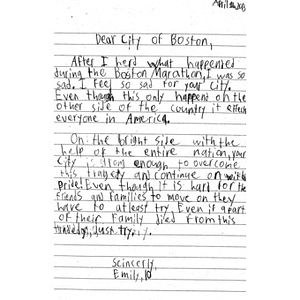 Dear City of Boston,
After I herd what happented
during the Boston Marathon, I was so
sad. I feel so sad for your city.
Even though this only happent on the
other side of the country it effects
everyone in America.
On the bright side with the
help of the entire nation, your
city is strong enough to overcome
this tragedy and continue on with
pride! Even though it is hard for the
friends and families to move on they
have to atleast try. Even if a part
of their family died from this
Just try.
Scincerly,
Emily, 10